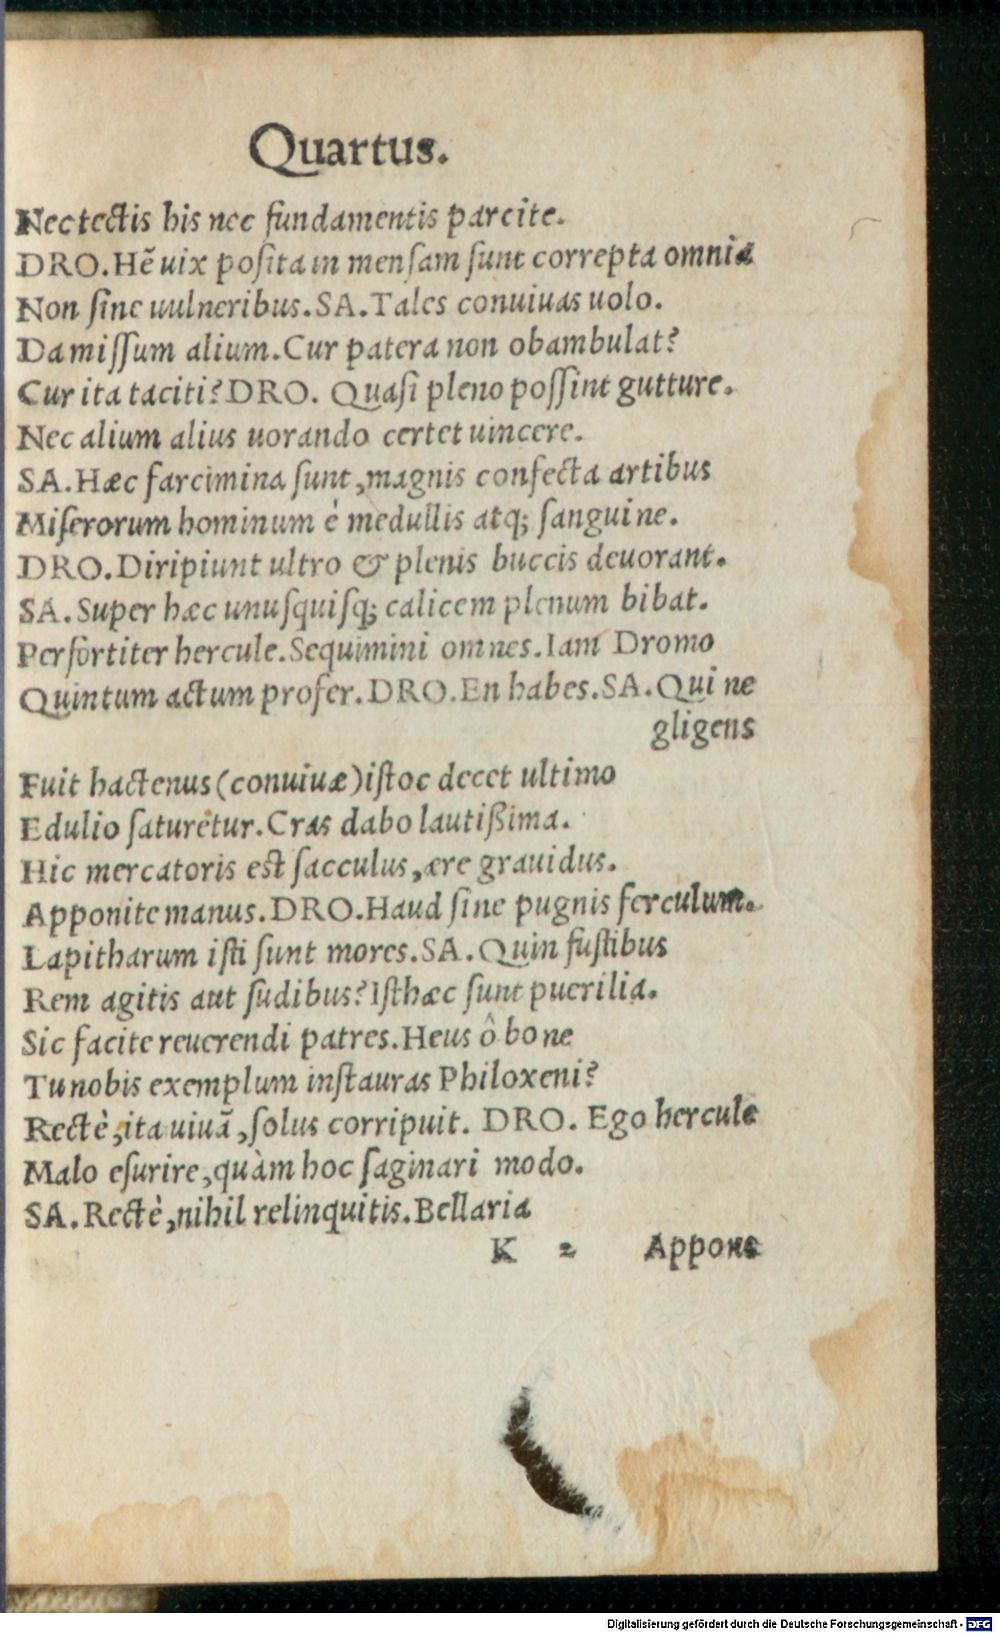 Quartus.
Nec tectis his nec fundamentis parcite.
DRO. Hẽ uix posita in mensam sunt correpta omnia
Non sine uulneribus. SA. Tales conuiuas uolo.
Da missum alium. Cur patera non obambulat?
Cur ita taciti? DRO. Quasi pleno possint gutture.
Nec alium alius uorando certet uincere.
SA. Hæc farcimina sunt, magnis confecta artibus
Miserorum hominum è medullis atq; sanguine.
DRO. Diripiunt ultro & plenis buccis deuorant.
SA. Super hæc unusquisq; calicem plenum bibat.
Perfortiter hercule. Sequimini omnes. Iam Dromo
Quintum actum profer. DRO. En habes. SA. Qui ne
gligens
Fuit hactenus (conuiuæ) istoc decet ultimo
Edulio saturetur. Cras dabo lautißima.
Hic mercatoris est sacculus, ære grauidus.
Apponite manus. DRO. Haud sine pugnis ferculum.
Lapitharum isti sunt mores. SA. Quin fustibus
Rem agitis aut sudibus? Isthæc sunt puerilia.
Sic facite reuerendi patres. Heus ô bone
Tu nobis exemplum instauras Philoxeni?
Rectè, ita uiuã, solus corripuit. DRO. Ego hercule
Malo esurire, quàm hoc saginari modo.
SA. Rectè, nihil relinquitis. Bellaria
K 2 Appone
Digitalisierung gefördert durch die Deutsche Forschungsgemeinschaft - DFG